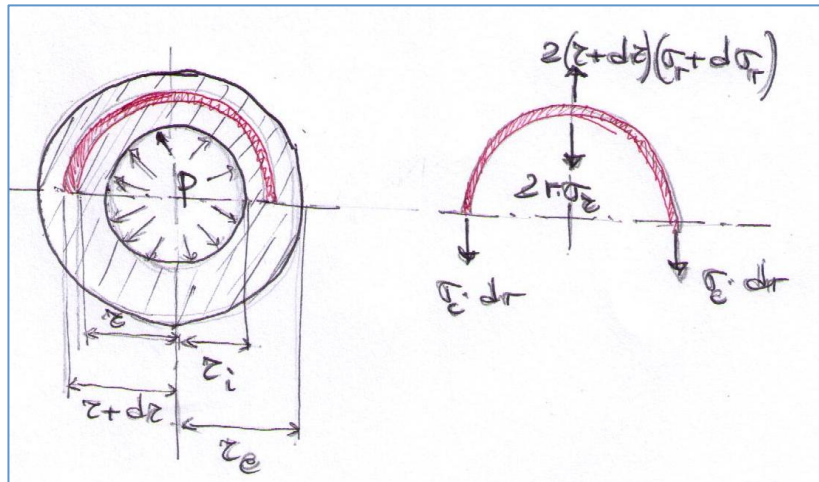 2(r+dr)(σr+dσr)
P
2r·σr
σc·dr
σc·dr
r
ri
r+dr
re